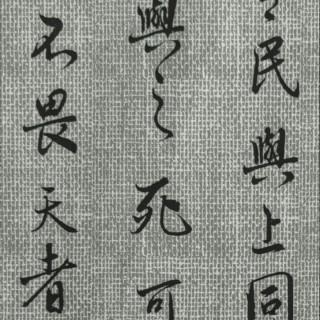 民與上同
與之死可
不畏天者